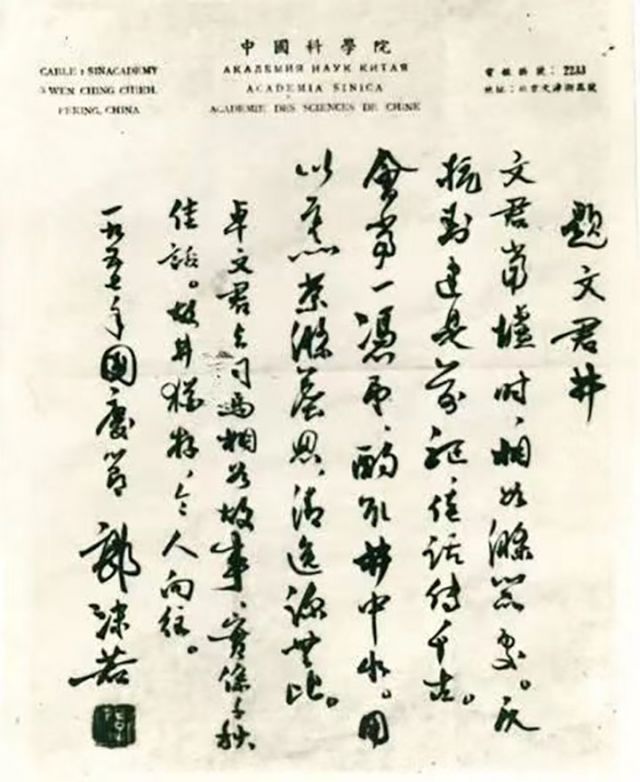 中國科學院
АКАДЕМИЯ НАУК КИТАЯ
ACADEMIA SINICA
ACADEMIE DES SCIENCES DE CHINE
CABLE : SINACADEMY
3 WEN CHING CHIEH,
PEKING, CHINA
電報掛號：2233
地址：北京文津街三號
題文君井
文君當壚时、相如滌器處。反
抗封建是前驱、佳话传千古。
會當一憑弔、酌取井中水。用
以烹茶滌塵思、清逸凉無比。
卓文君与司馬相如故事、實係千秋
佳話。故井猶存、令人向往。
一九五七年國慶節 郭沫若